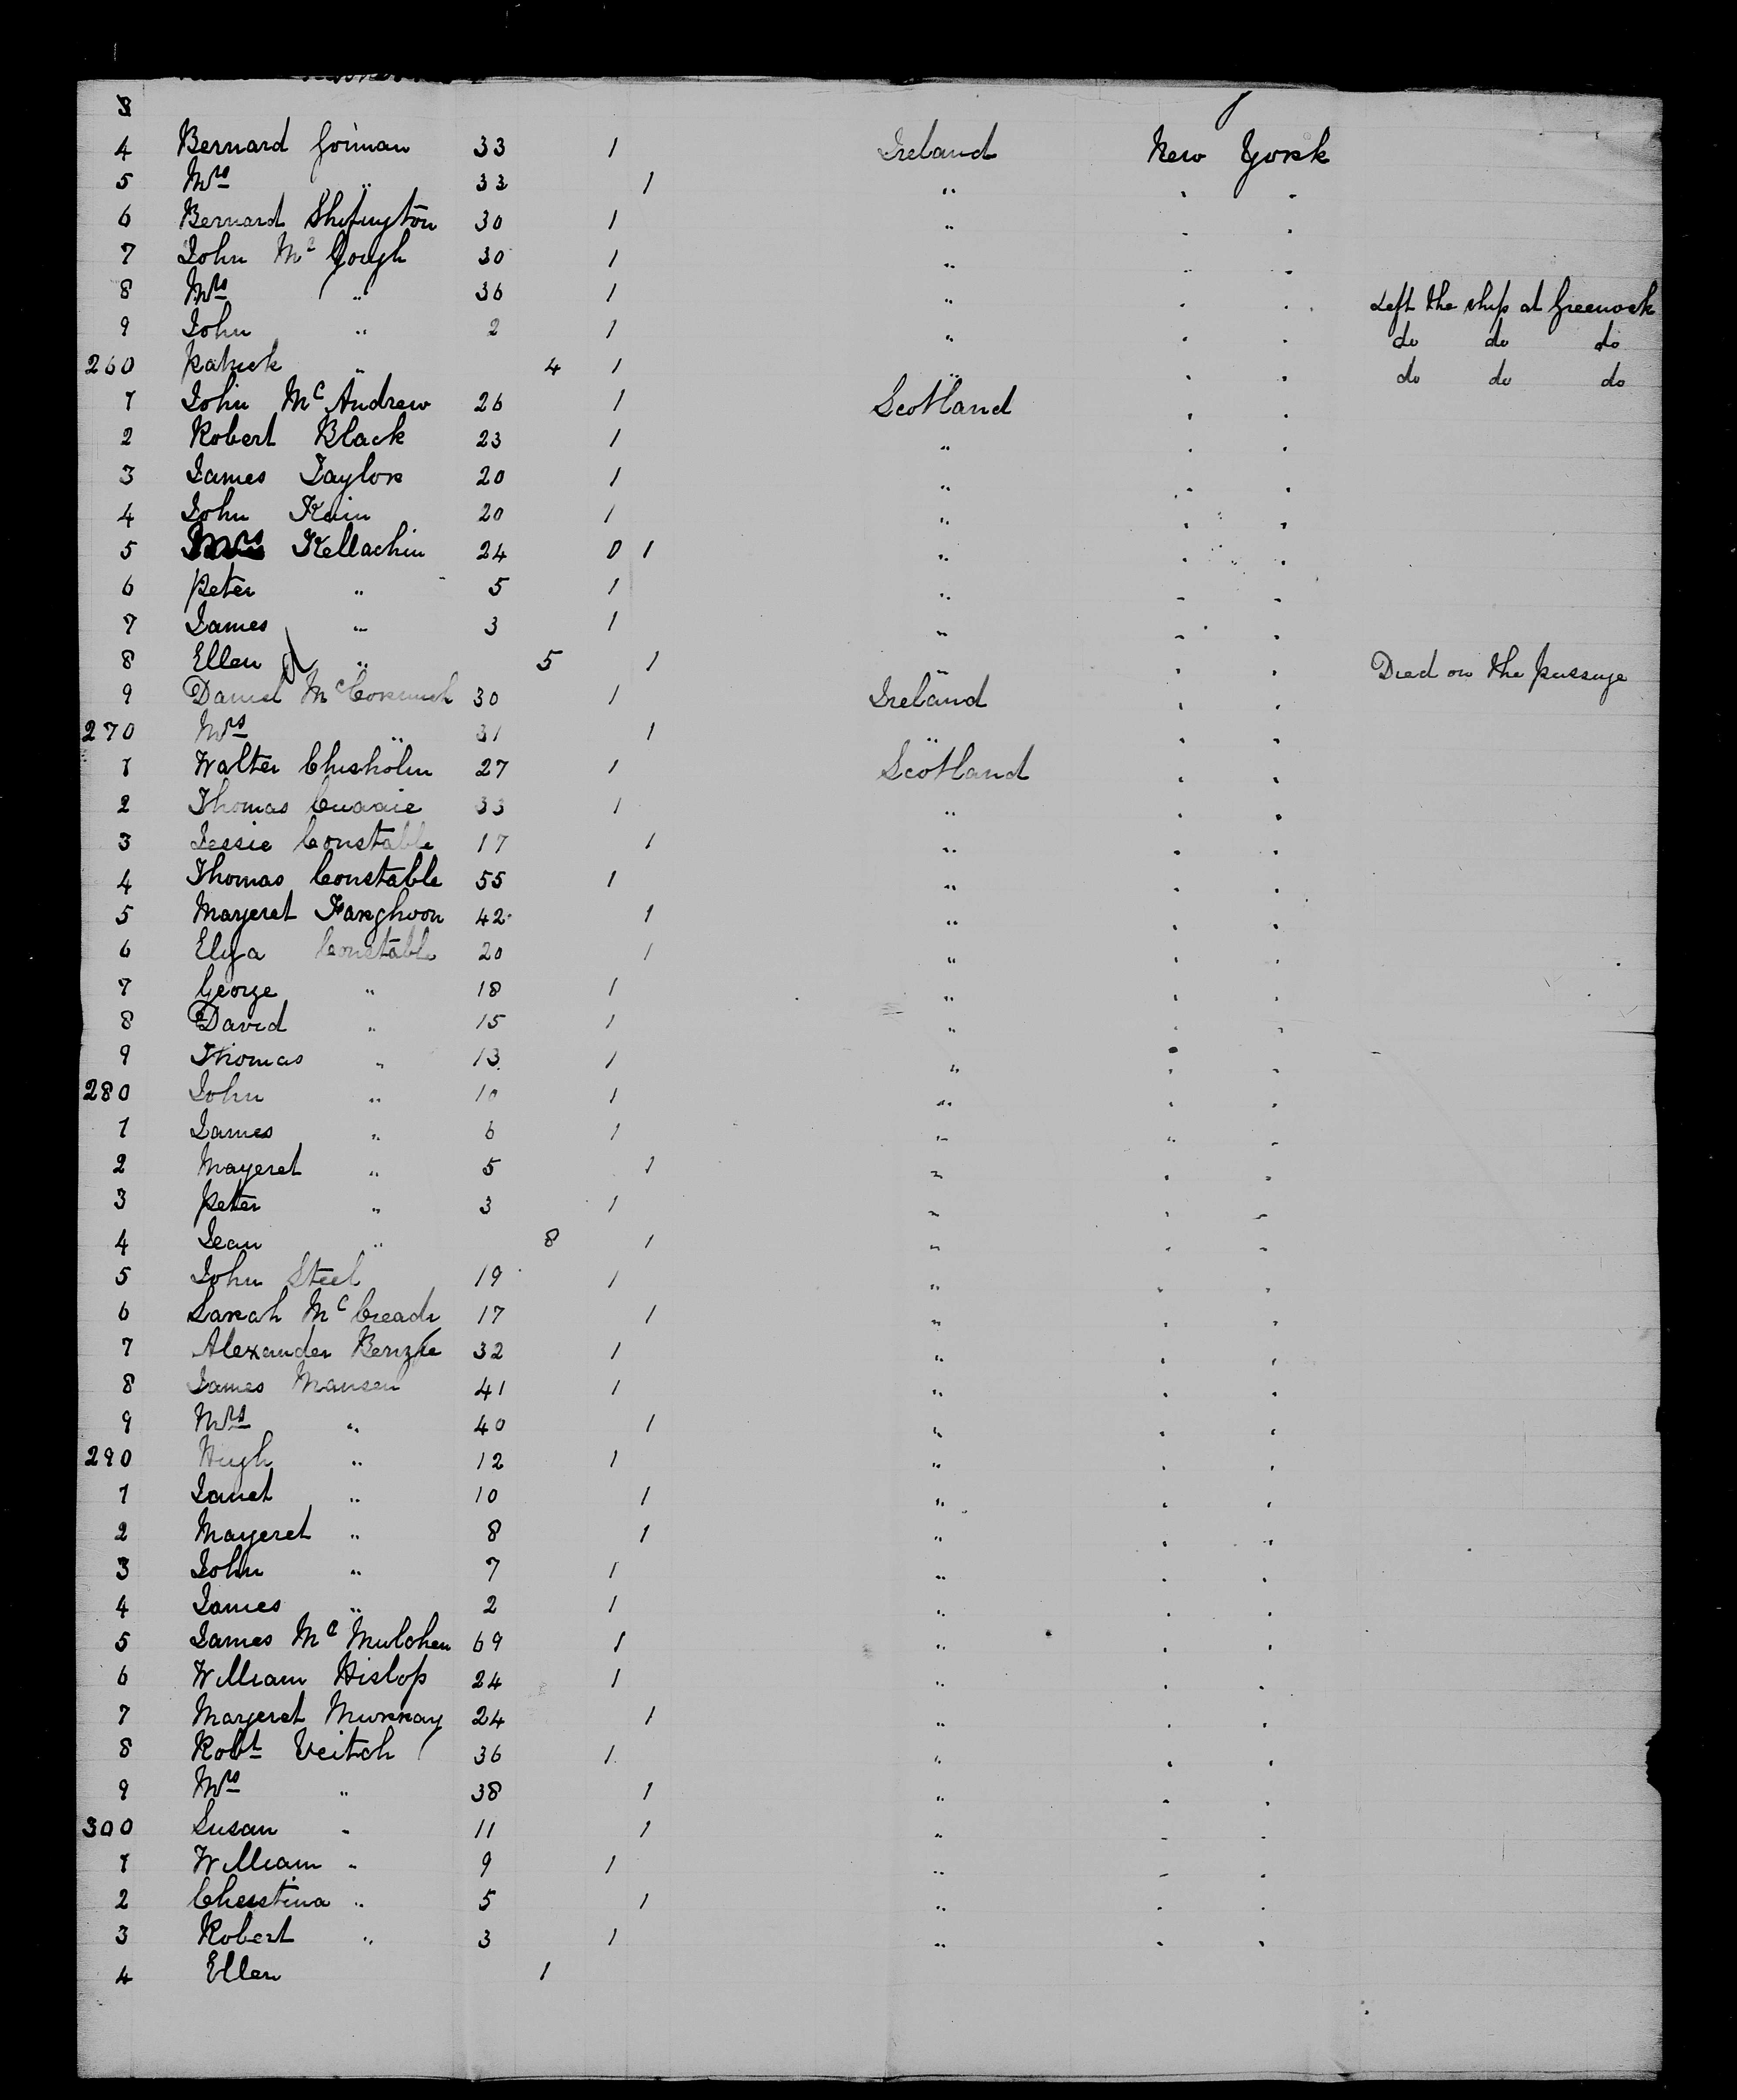 3
4 Bernard Gorman 33 1 Ireland New York
5 Mrs " 33 1 " " "
6 Bernard Shefington 30 1 " " "
7 John Mc Gough 30 1 " " "
8 Mrs " 36 1 " " " Left the ship at Greenock
9 John " 2 1 " " " do do do
260 Patrick " 4 1 " " " do do do
1 John Mc Andrew 26 1 Scotland " "
2 Robert Black 23 1 " " "
3 James Taylor 20 1 " " "
4 John Kain 20 1 " " "
5 Mrs Kellachin 24 0 1 " " "
6 Peter " 5 1 " " "
7 James " 3 1 " " "
8 Ellen " 5 1 " " " Died on the passage
9 Daniel Mc Cormick 30 1 Ireland " "
270 Mrs " 31 1 " " "
1 Walter Chisholm 27 1 Scotland " "
2 Thomas Currie 33 1 " " "
3 Jessie Constable 17 1 " " "
4 Thomas Constable 55 1 " " "
5 Margeret 42 1 " " "
6 Eliza Constable 20 1 " " "
7 George " 18 1 " " "
8 David " 15 1 " " "
9 Thomas " 13 1 " " "
280 John " 10 1 " " "
1 James " 6 1 " " "
2 Margeret " 5 1 " " "
3 Peter " 3 1 " " "
4 Jean " 8 1 " " "
5 John Steel 19 1 " " "
6 Sarah Mc Creadi 17 1 " " "
7 Alexander Benzie 32 1 " " "
8 James Mansen 41 1 " " "
9 Mrs " 40 1 " " "
290 Hugh " 12 1 " " "
1 Janet " 10 1 " " "
2 Margeret " 8 1 " " "
3 John " 7 1 " " "
4 James " 2 1 " " "
5 James Mc Mulchen 69 1 " " "
6 William Hislop 24 1 " " "
7 Margeret Murray 24 1 " " "
8 Robt Veitch 36 1 " " "
9 Mrs " 38 1 " " "
300 Susan " 11 1 " " "
1 William " 9 1 " " "
2 Christina " 5 1 " " "
3 Robert " 3 1 " " "
4 Ellen 1